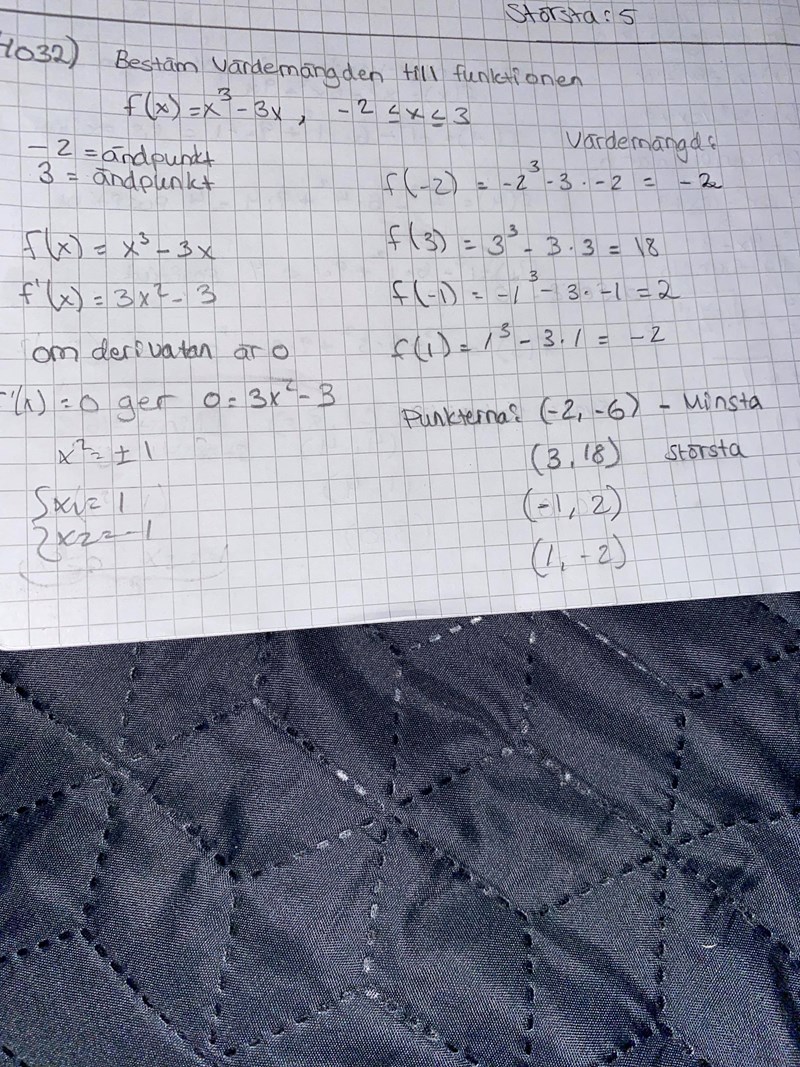 Största: 5
4032) Bestäm värdemängden till funktionen
f(x) = x³ - 3x, -2 ≤ x ≤ 3
-2 = ändpunkt
3 = ändpunkt
f(x) = x³ - 3x
f'(x) = 3x² - 3
om derivatan är 0
f'(x) = 0 ger 0 = 3x² - 3
x² = ± 1
{x1 = 1
{x2 = -1
Värdemängd:
f(-2) = -2³ - 3 · -2 = -2
f(3) = 3³ - 3 · 3 = 18
f(-1) = -1³ - 3 · -1 = 2
f(1) = 1³ - 3 · 1 = -2
Punkterna: (-2, -6) - Minsta
(3, 18) största
(-1, 2)
(1, -2)